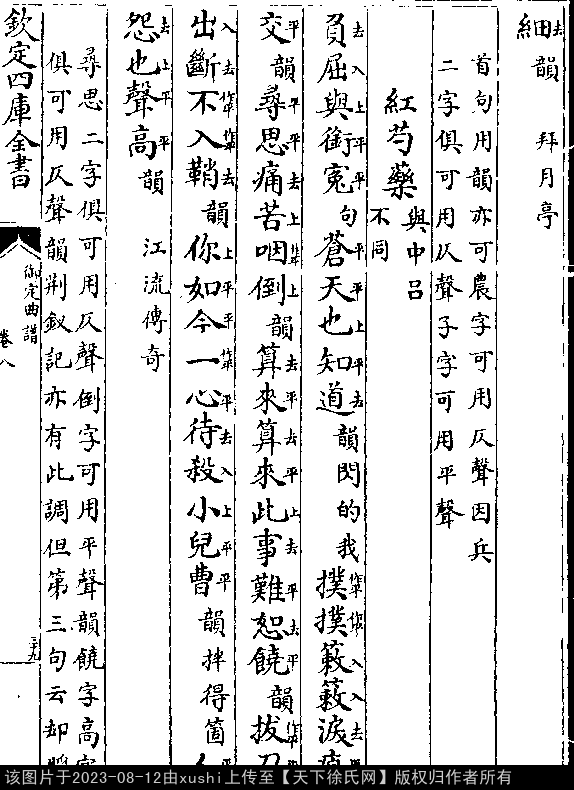 細去韻　拜月亭
首句用韻亦可農字可用仄聲因兵
二字俱可用仄聲子字可用平聲
紅芍藥與中呂不同
負去屈入與上銜平冤平句蒼平天平也上知平道去韻閃的我撲作平撲作平簌入簌入淚去
交平韻尋平思平痛去苦上咽倒上韻算去來平算去來平此上事去難平恕去饒平韻拔作平刀
出入斷去不作平入作平鞘去韻你上如平今平一作平心平待去殺入小上兒平曹平韻拌得箇
怨去也上聲平高平韻　江流傳奇
尋思二字俱可用仄聲倒字可用平聲韻饒字高字
俱可用仄聲韻荆釵記亦有此調但第三句云却
欽定四庫全書
御定曲譜
卷八
三十九
该图片于2023-08-12由xushi上传至【天下徐氏网】版权归作者所有